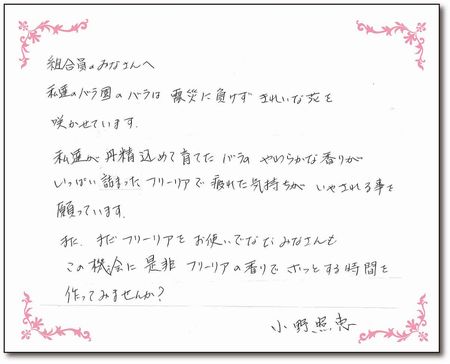 組合員のみなさんへ
私達のバラ園のバラは 震災に負けず きれいな花を
咲かせています。
私達が 丹精込めて育てた バラの やわらかな香りが
いっぱい詰まった フリーリアで 疲れた気持ちが いやされる事を
願っています。
また、まだ フリーリアを お使いでない みなさんも
この機会に 是非 フリーリアの香りで ホッとする時間を
作ってみませんか?
小野照恵